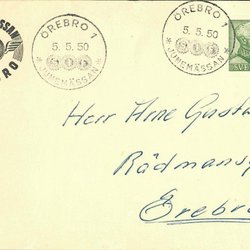 ÖREBRO 1
5. 5. 50
* JUNEMÄSSAN *
ÖREBRO 1
5. 5. 50
* JUNEMÄSSAN *
SVE
Herr Arne Gusta
Rådmansg
Örebro